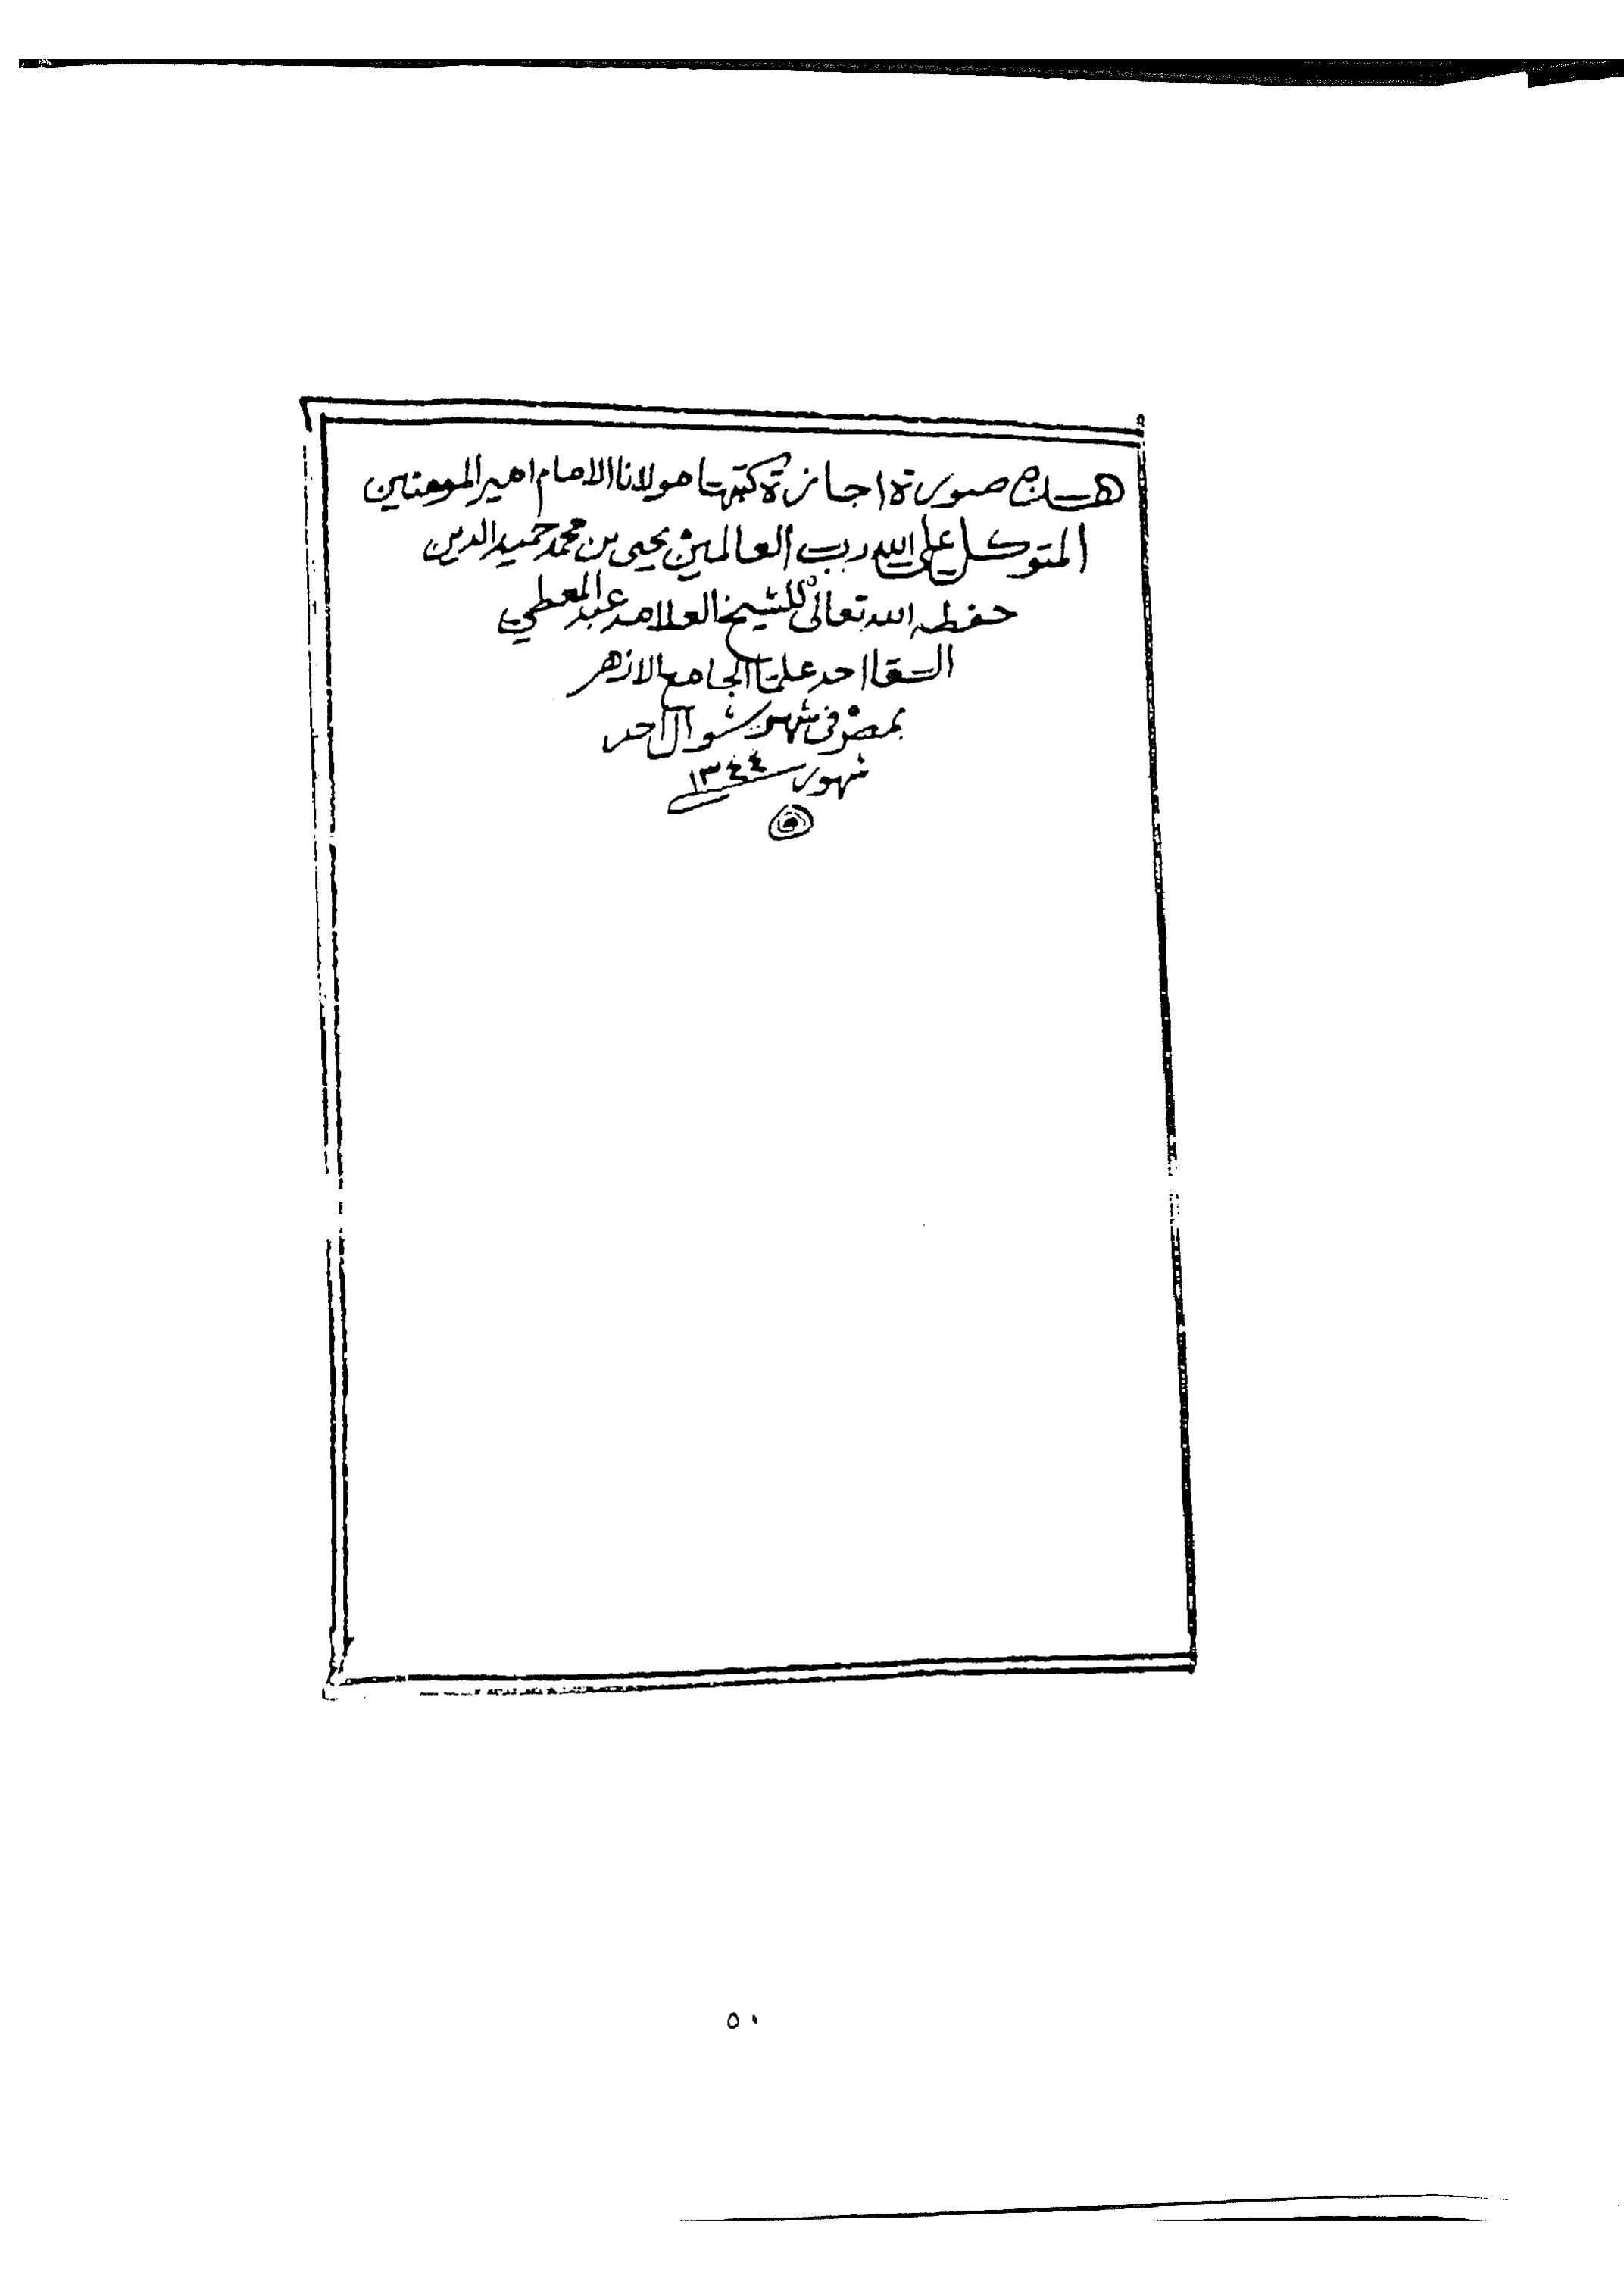 هذه صورة اجازة كتبها مولانا الامام امير المومنين
المتوكل على الله رب العالمين يحيى بن محمد حميد الدين
حفظه الله تعالى للشيخ العلامه عبد المعطي
السقا احد علما الجامع الازهر
بمصر في شهر شوال احد
شهور ١٣٤٤
٥٠